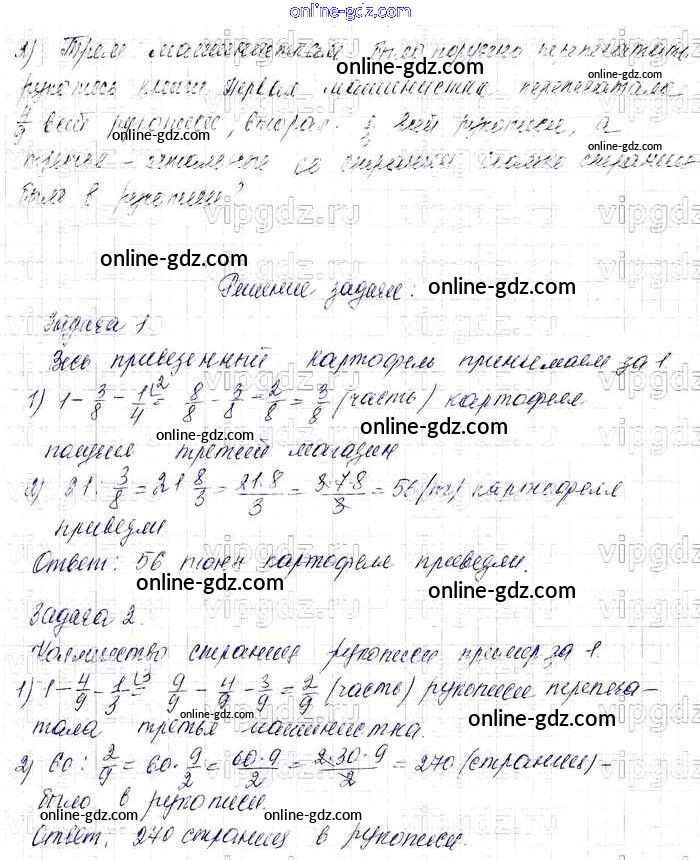 online-gdz.com
2) Трем машинисткам было поручено перепечатать
рукопись книги. Первая машинистка перепечатала
4/9 всей рукописи, вторая - 1/3 всей рукописи, а
третья - остальные 60 страниц. Сколько страниц
было в рукописи?
Решение задач:
Задача 1.
Весь привезенный картофель принимаем за 1
1) 1 - 3/8 - 1/4 = 8/8 - 3/8 - 2/8 = 3/8 (часть) картофеля
получил третий магазин
2) 21 : 3/8 = 21 8/3 = 21·8/3 = 3·7·8/3 = 56 (т) картофеля
привезли
Ответ: 56 тонн картофеля привезли.
Задача 2.
Количество страниц рукописи примем за 1.
1) 1 - 4/9 - 1/3 = 9/9 - 4/9 - 3/9 = 2/9 (часть) рукописи перепеча-
тала третья машинистка.
2) 60 : 2/9 = 60 · 9/2 = 60·9/2 = 2·30·9/2 = 270 (страниц) -
было в рукописи.
Ответ: 270 страниц в рукописи.